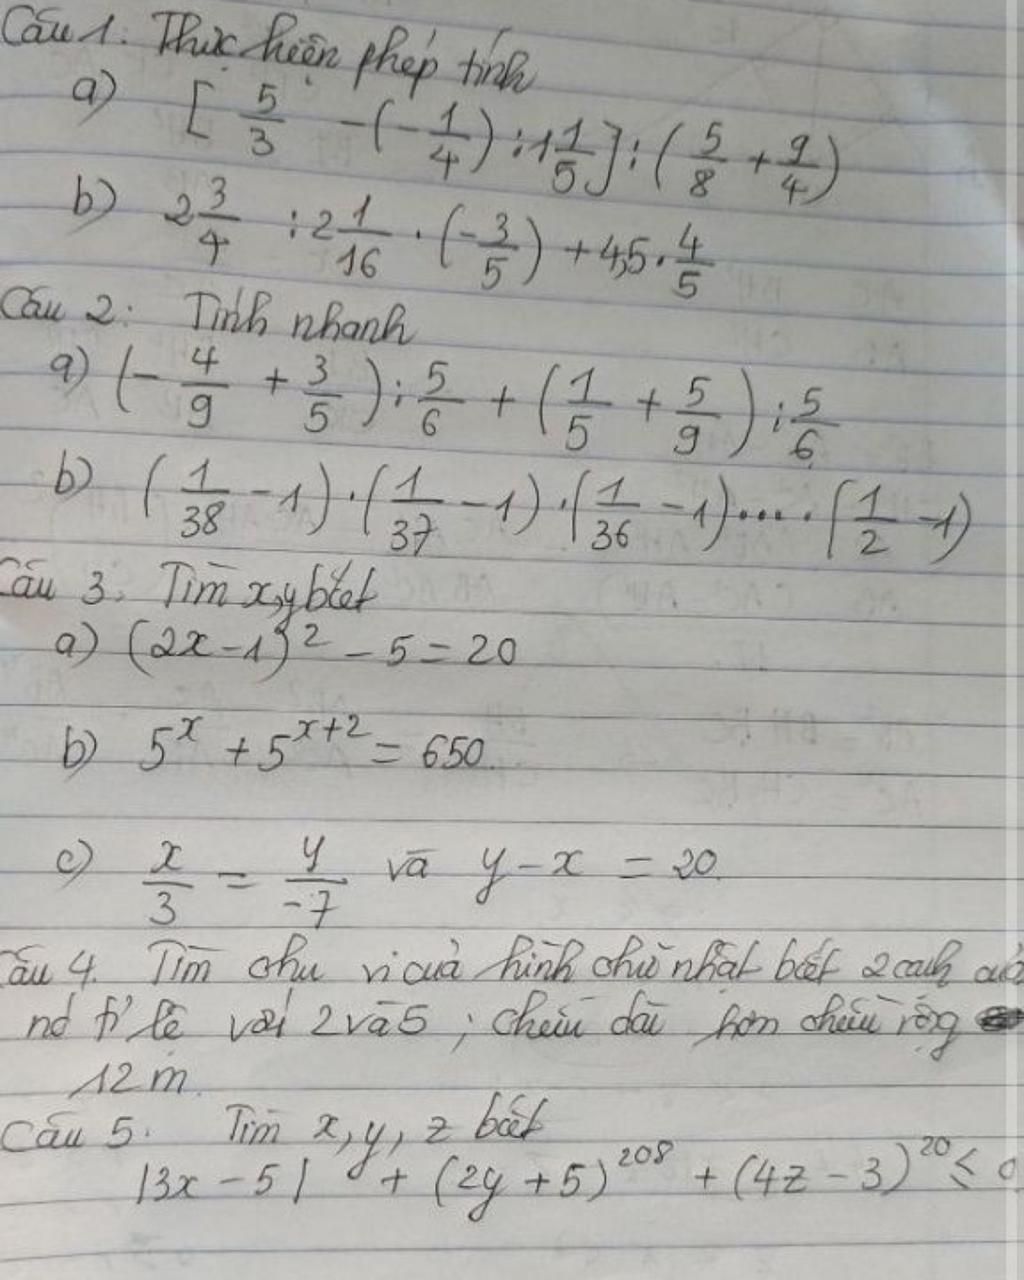 Câu 1. Thực hiện phép tính
a) [5/3 - (-1/4) : 1 1/5] : (5/8 + 9/4)
b) 2 3/4 : 2 1/16 . (-3/5) + 4,5 . 4/5
Câu 2: Tính nhanh
a) (-4/9 + 3/5) : 5/6 + (1/5 + 5/9) : 5/6
b) (1/38 - 1) . (1/37 - 1) . (1/36 - 1) .... (1/2 - 1)
Câu 3. Tìm x,y biết
a) (2x - 1)² - 5 = 20
b) 5^x + 5^(x+2) = 650.
c) x/3 = y/-7 và y - x = 20.
Câu 4. Tìm chu vi của hình chữ nhật biết 2 cạnh của
nó tỉ lệ với 2 và 5 ; chiều dài hơn chiều rộng
12 m.
Câu 5. Tìm x, y, z biết
|3x - 5| + (2y + 5)^208 + (4z - 3)^20 ≤ 0